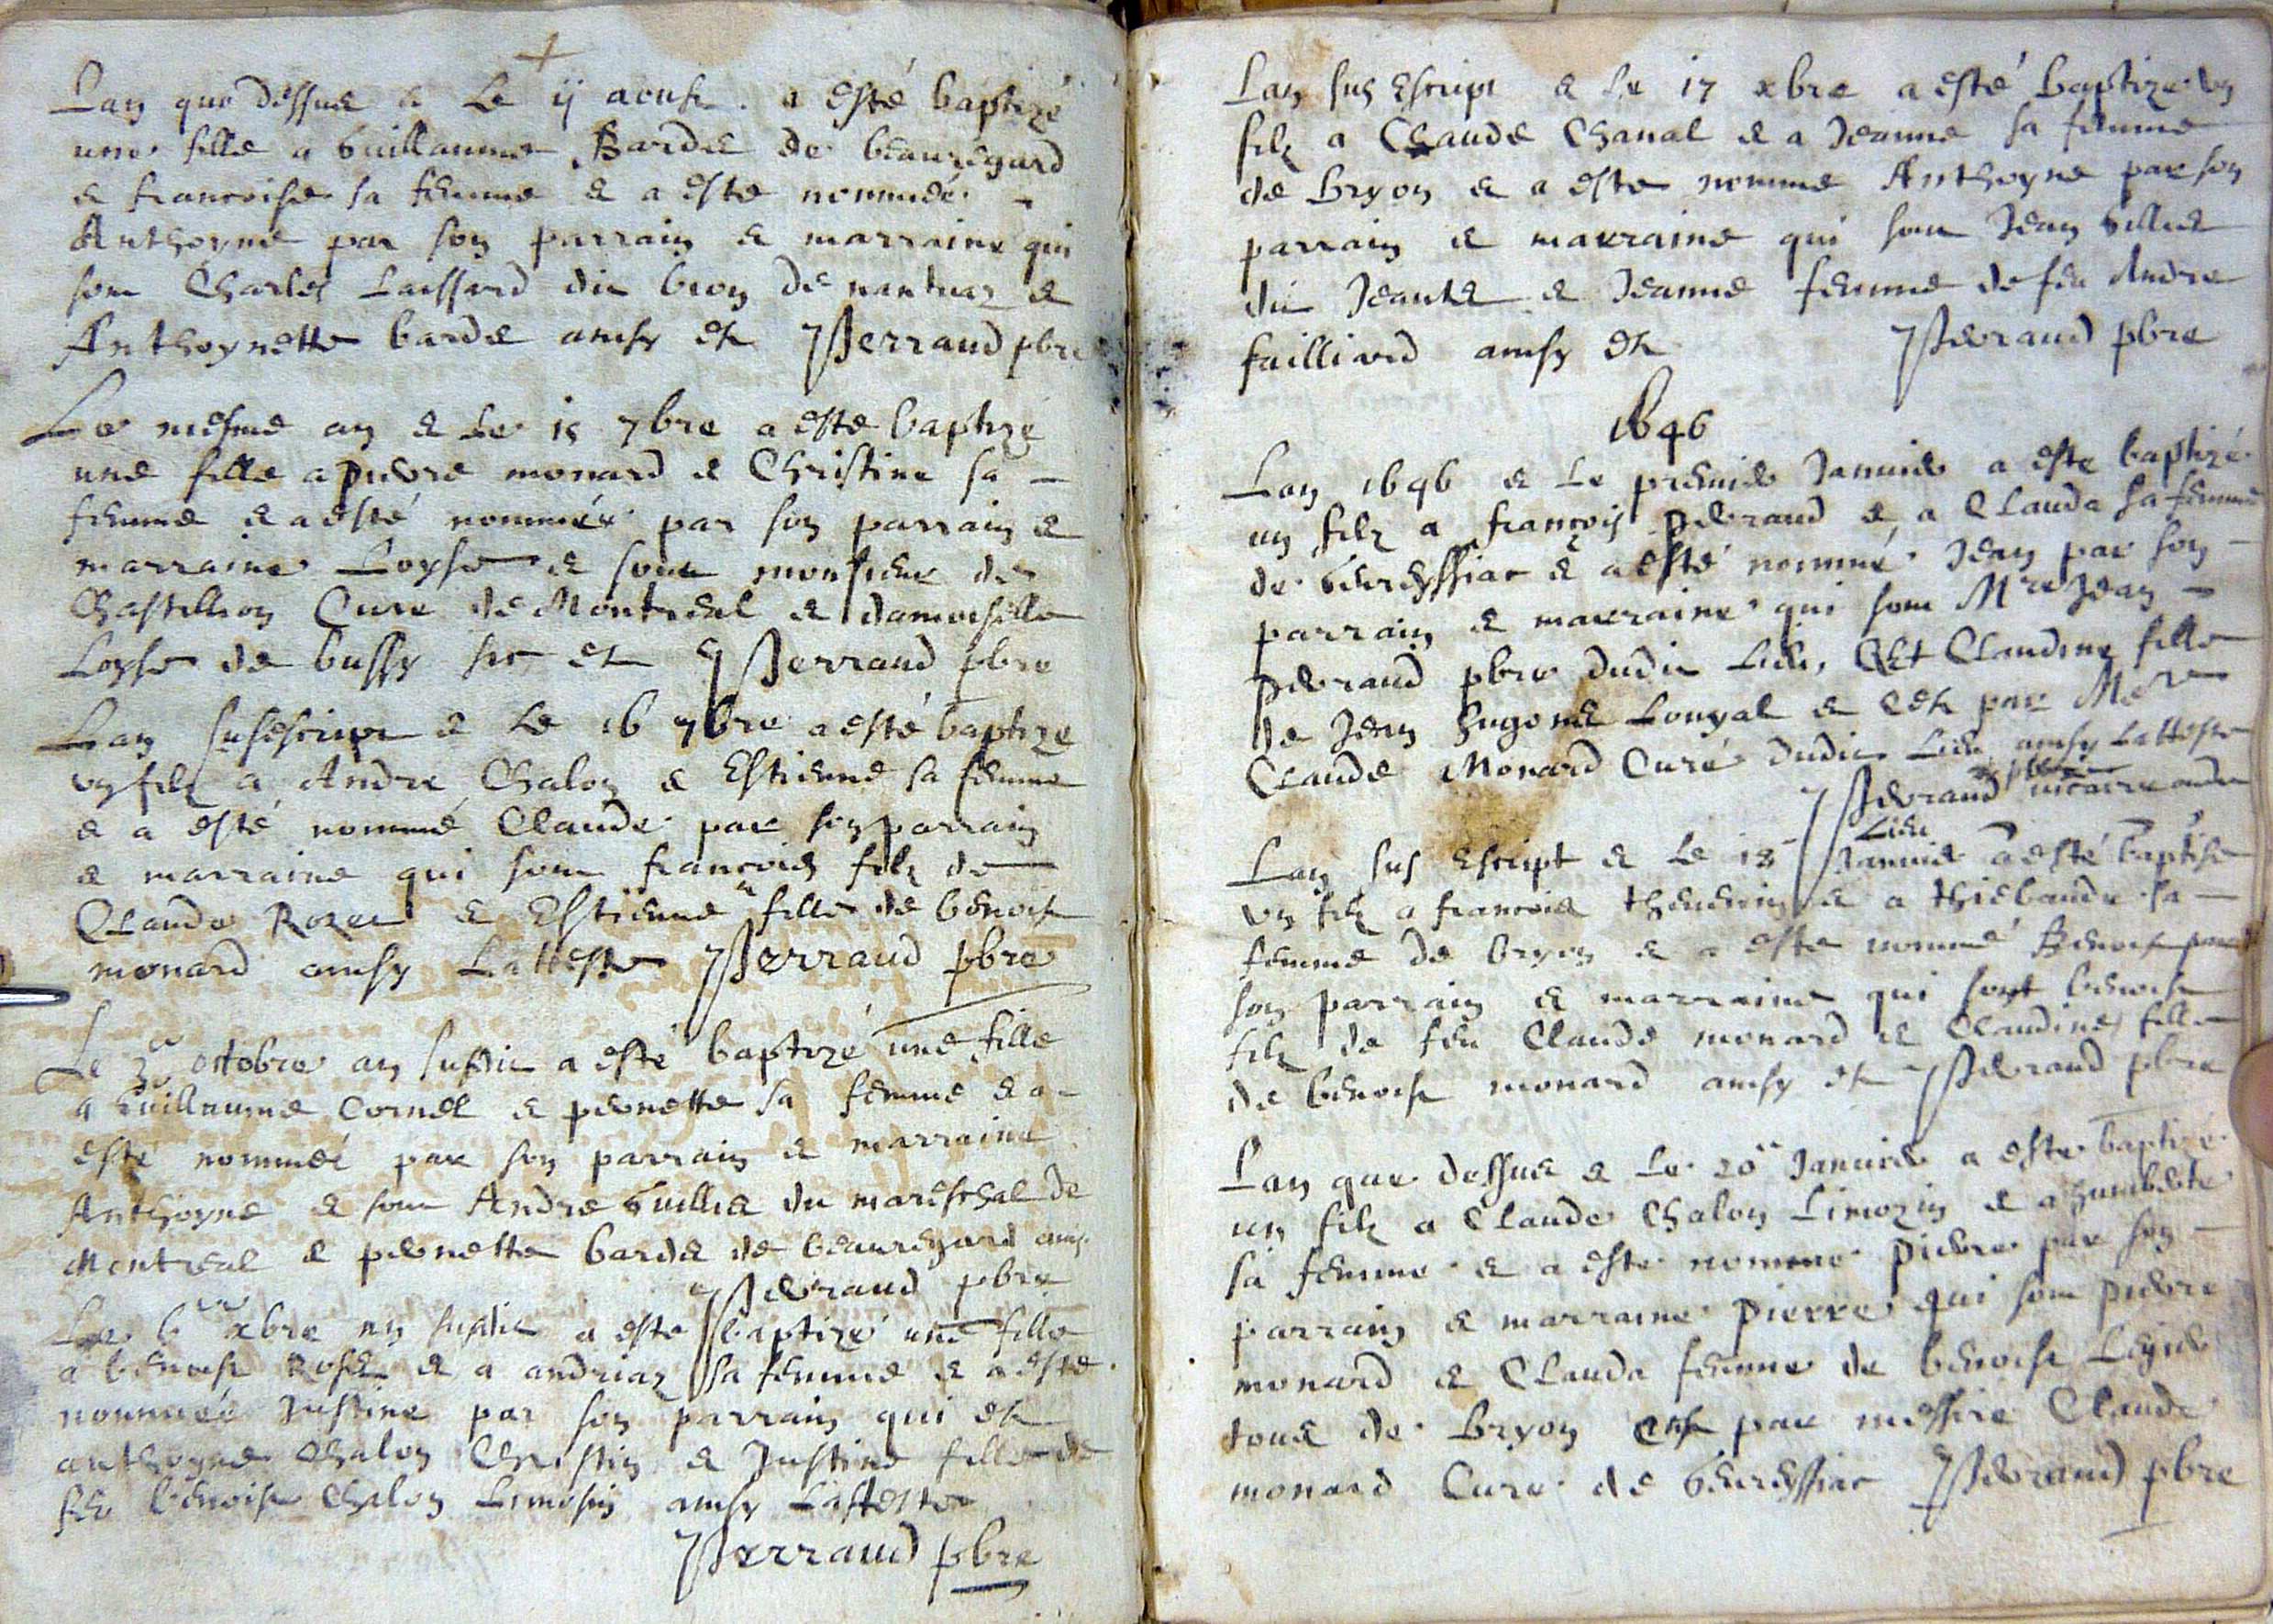 Lan que dessus & le ij aoust a esté baptizé
une fille a Guillaume Bardet de beauregard
& francoise sa femme & a esté nommée
Anthoyne par son parrain & marraine qui
sont Charles Laissard dit bron de nantuaz &
Anthoynette bardet ainsy est JPerraud pbre
Le mesme an & le 15 7bre a este baptizé
une fille a pierre monard & Christine sa
femme & a esté nommée par son parrain &
marraine Loyse & sont monsieur de
Chastillion Curé de Montreal & damoiselle
Loyse de bussy est JPerraud pbre
Lan susescript & le 16 7bre a esté baptize
un filz a Andre Chalon & Estienne sa femme
& a esté nommé Claude par son parrain
& marraine qui sont francois filz de
Claude Rozet & Estienne fille de benoist
monard ainsy Latteste JPerraud pbre
Le 3e octobre an susdit a esté baptizé une fille
a Guillaume Cornet & pernette sa femme & a
esté nommée par son parrain & marraine
Anthoyne & sont Andre Guillet du mareschal de
Montreal & pernette bardet de beauregard ains
JPerraud pbre
Le 6 xbre an susdit a este baptizé une fille
a benoist Roset & a andriaz sa femme & a esté
nommée Justine par son parrain qui est
anthoyne Chalon Christin & Justine fille de
feu benoist Chalon Limosin ainsy Latteste
JPerraud pbre
Lan sus Escript & le 17 xbre a esté baptize un
filz a Claude Chanal & a Jeanne sa femme
de Bryon & a este nomme Anthoyne par son
parrain & marraine qui sont Jean Gillet
dit Jeantet & Jeanne femme de feu Andre
failliard ainsy est JPerraud pbre
1646
Lan 1646 & le premier Janvier a este baptizé
un filz a françois perraud & a Clauda sa femme
de Geureyssiat & a esté nommé Jean par son
parrain & marraine qui sont Mre Jean
perraud pbre dudit Lieu, Et Claudine fille
de Jean Hugonet Louyal & est par Mere
Claude Monard Curé dudit Lieu ainsy Latteste
JPerraud pbre vicaire audit
Lieu
Lan sus Escript & le 18 Janvier a esté baptise
un filz a francois thevenin & a thiebaude sa
femme de bryon & a este nommé Benoist par
son parrain & marraine qui sont benoist
filz de feu Claude monard & Claudine fille
de benoist monard ainsy est JPerraud pbre
Lan que dessus & le 20 Janvier a este baptizé
un filz a Claude Chalon Limozin & a humberte
sa femme & a este nomme pierre par son
parrain & marraine pierre qui sont pierre
monard & Clauda femme de benoist Leyrier
tous de Bryon est par messire Claude
monard Curé de Geureyssiat JPerraud pbre